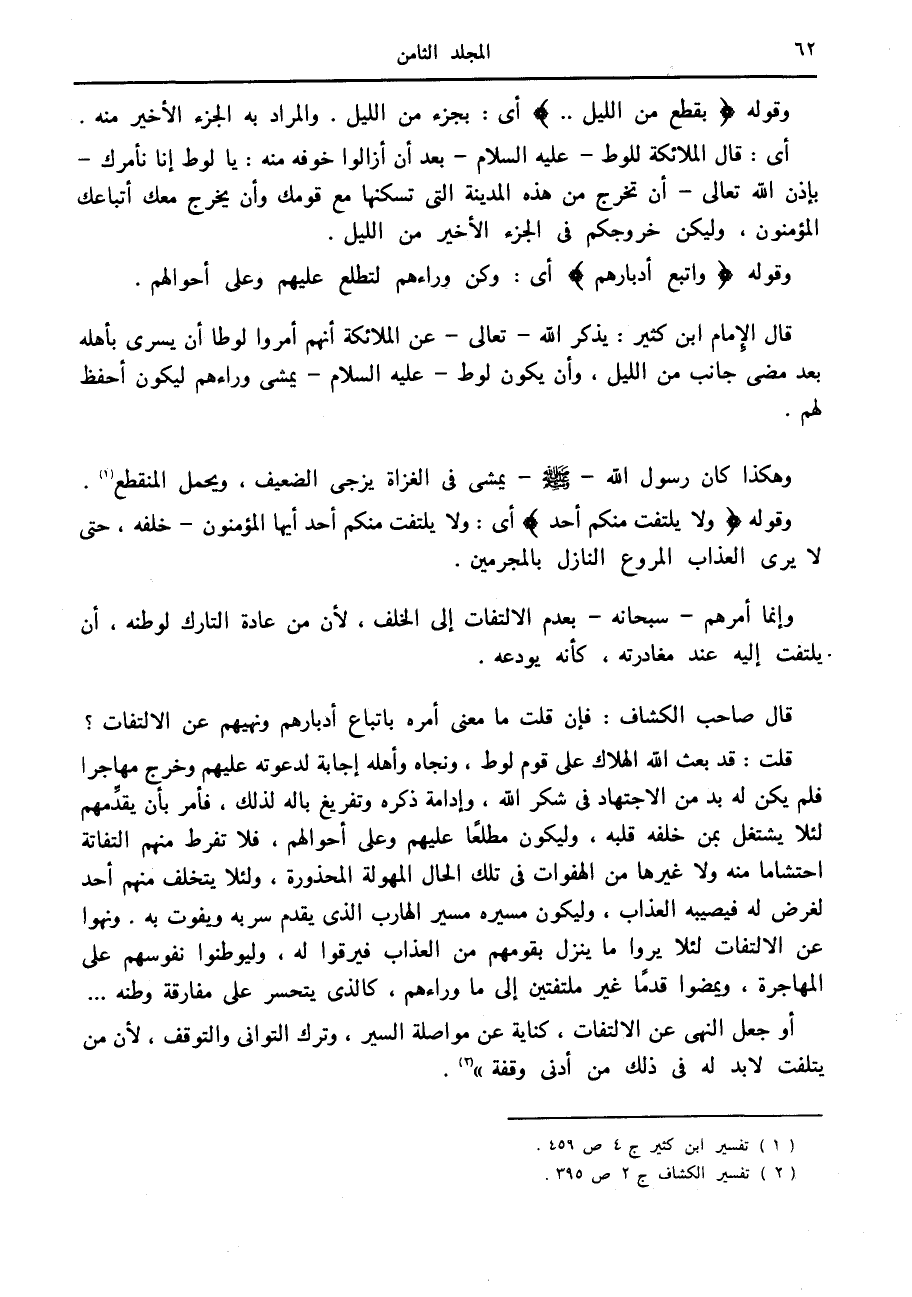 ٦٢
المجلد الثامن
وقوله ﴿ بقطع من الليل .. ﴾ أى : بجزء من الليل . والمراد به الجزء الأخير منه .
أى : قال الملائكة للوط – عليه السلام – بعد أن أزالوا خوفه منه : يا لوط إنا نأمرك –
بإذن الله تعالى – أن تخرج من هذه المدينة التى تسكنها مع قومك وأن يخرج معك أتباعك
المؤمنون ، وليكن خروجكم فى الجزء الأخير من الليل .
وقوله ﴿ واتبع أدبارهم ﴾ أى : وكن وراءهم لتطلع عليهم وعلى أحوالهم .
قال الإمام ابن كثير : يذكر الله – تعالى – عن الملائكة أنهم أمروا لوطا أن يسرى بأهله
بعد مضى جانب من الليل ، وأن يكون لوط – عليه السلام – يمشى وراءهم ليكون أحفظ
لهم .
وهكذا كان رسول الله – ﷺ – يمشى فى الغزاة يزجى الضعيف ، ويحمل المنقطع(١) .
وقوله ﴿ ولا يلتفت منكم أحد ﴾ أى : ولا يلتفت منكم أحد أيها المؤمنون – خلفه ، حتى
لا يرى العذاب المروع النازل بالمجرمين .
وإنما أمرهم – سبحانه – بعدم الالتفات إلى الخلف ، لأن من عادة التارك لوطنه ، أن
يلتفت إليه عند مغادرته ، كأنه يودعه .
قال صاحب الكشاف : فإن قلت ما معنى أمره باتباع أدبارهم ونهيهم عن الالتفات ؟
قلت : قد بعث الله الهلاك على قوم لوط ، ونجاه وأهله إجابة لدعوته عليهم وخرج مهاجرا
فلم يكن له بد من الاجتهاد فى شكر الله ، وإدامة ذكره وتفريغ باله لذلك ، فأمر بأن يقدِّمهم
لئلا يشتغل بمن خلفه قلبه ، وليكون مطلعًا عليهم وعلى أحوالهم ، فلا تفرط منهم التفاتة
احتشاما منه ولا غيرها من الهفوات فى تلك الحال المهولة المحذورة ، ولئلا يتخلف منهم أحد
لغرض له فيصيبه العذاب ، وليكون مسيره مسير الهارب الذى يقدم سربه ويفوت به . ونهوا
عن الالتفات لئلا يروا ما ينزل بقومهم من العذاب فيرقوا له ، وليوطنوا نفوسهم على
المهاجرة ، ويمضوا قدمًا غير ملتفتين إلى ما وراءهم ، كالذى يتحسر على مفارقة وطنه ...
أو جعل النهى عن الالتفات ، كناية عن مواصلة السير ، وترك التوانى والتوقف ، لأن من
يتلفت لابد له فى ذلك من أدنى وقفة »(٢) .
( ١ ) تفسير ابن كثير ج ٤ ص ٤٥٩ .
( ٢ ) تفسير الكشاف ج ٢ ص ٣٩٥ .